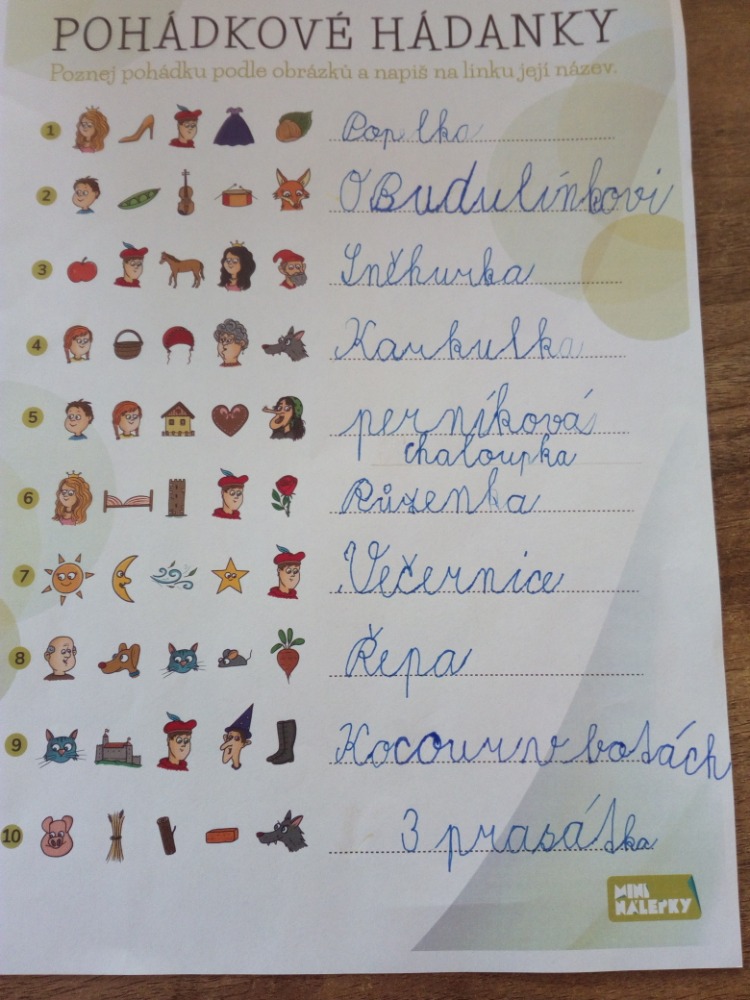 POHÁDKOVÉ HÁDANKY
Poznej pohádku podle obrázků a napiš na linku její název.
1 Popelka
2 O Budulínkovi
3 Sněhurka
4 Karkulka
5 perníková
chaloupka
6 Růženka
7 Večernice
8 Řepa
9 Kocour v botách
10 3 prasátka
MINI
NÁLEPKY